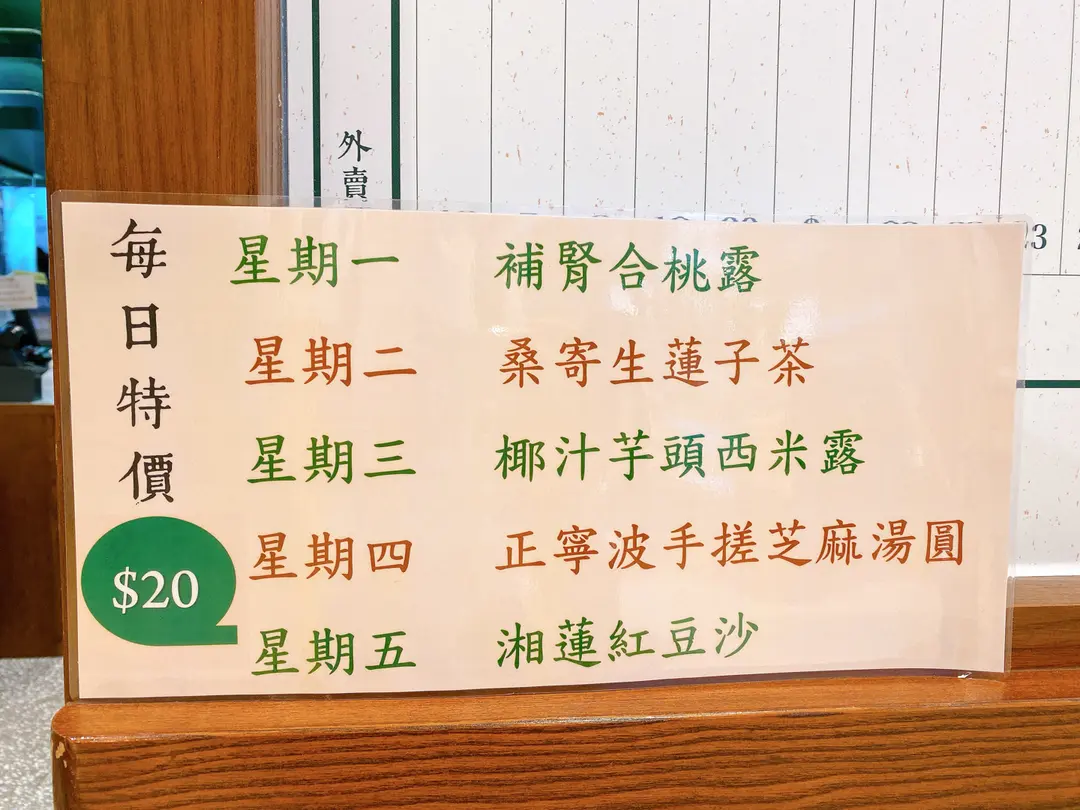 外賣
每日特價
$20
星期一 補腎合桃露
星期二 桑寄生蓮子茶
星期三 椰汁芋頭西米露
星期四 正寧波手搓芝麻湯圓
星期五 湘蓮紅豆沙